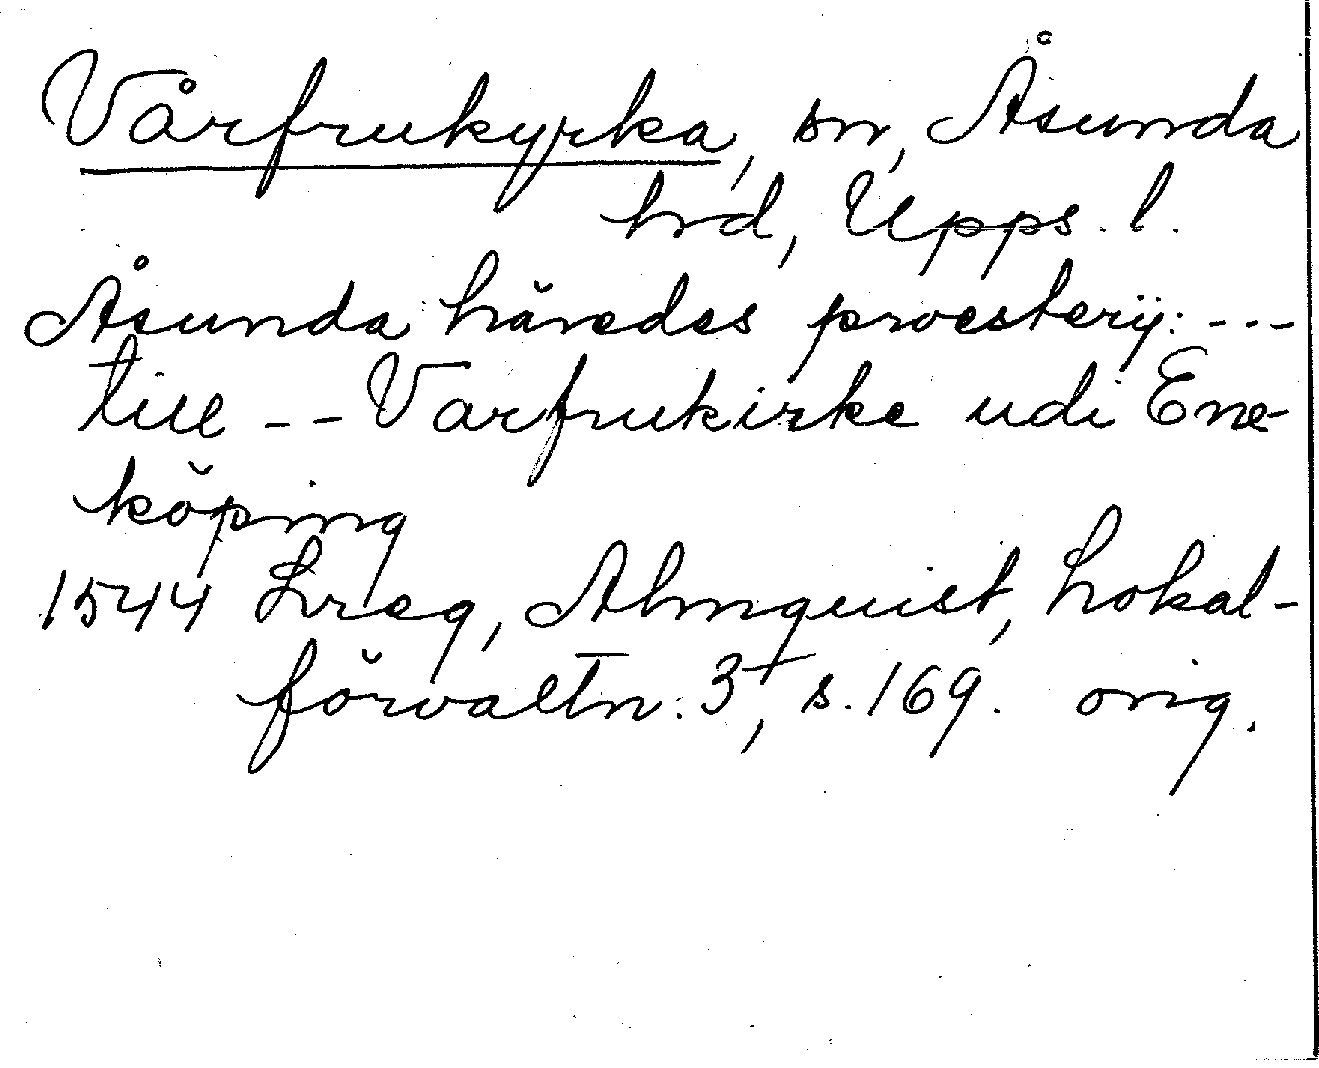 Vårfrukyrka, sn, Åsunda
hrd, Upps. l.
Åsunda häredes proesterij: ---
till -- Varfrukirke udi Ene-
köping
1544 Lreg, Almquist, Lokal-
förvaltn. 3, s. 169. orig.